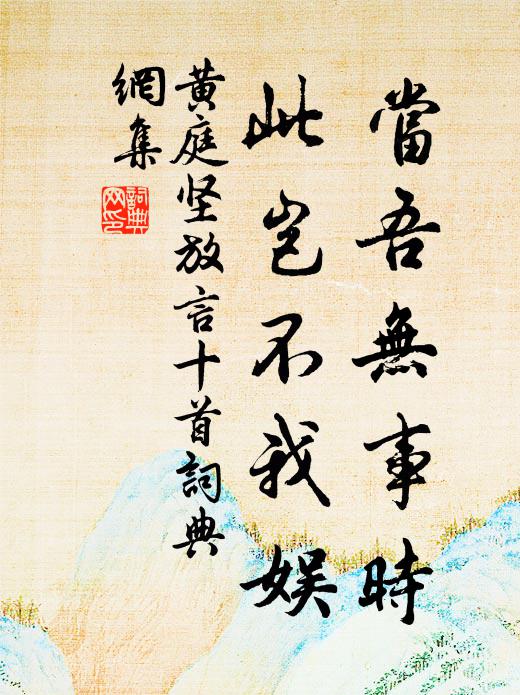 當吾無事時
此岂不我娛
黄庭坚放言十首詞典
網集
詞典
网印